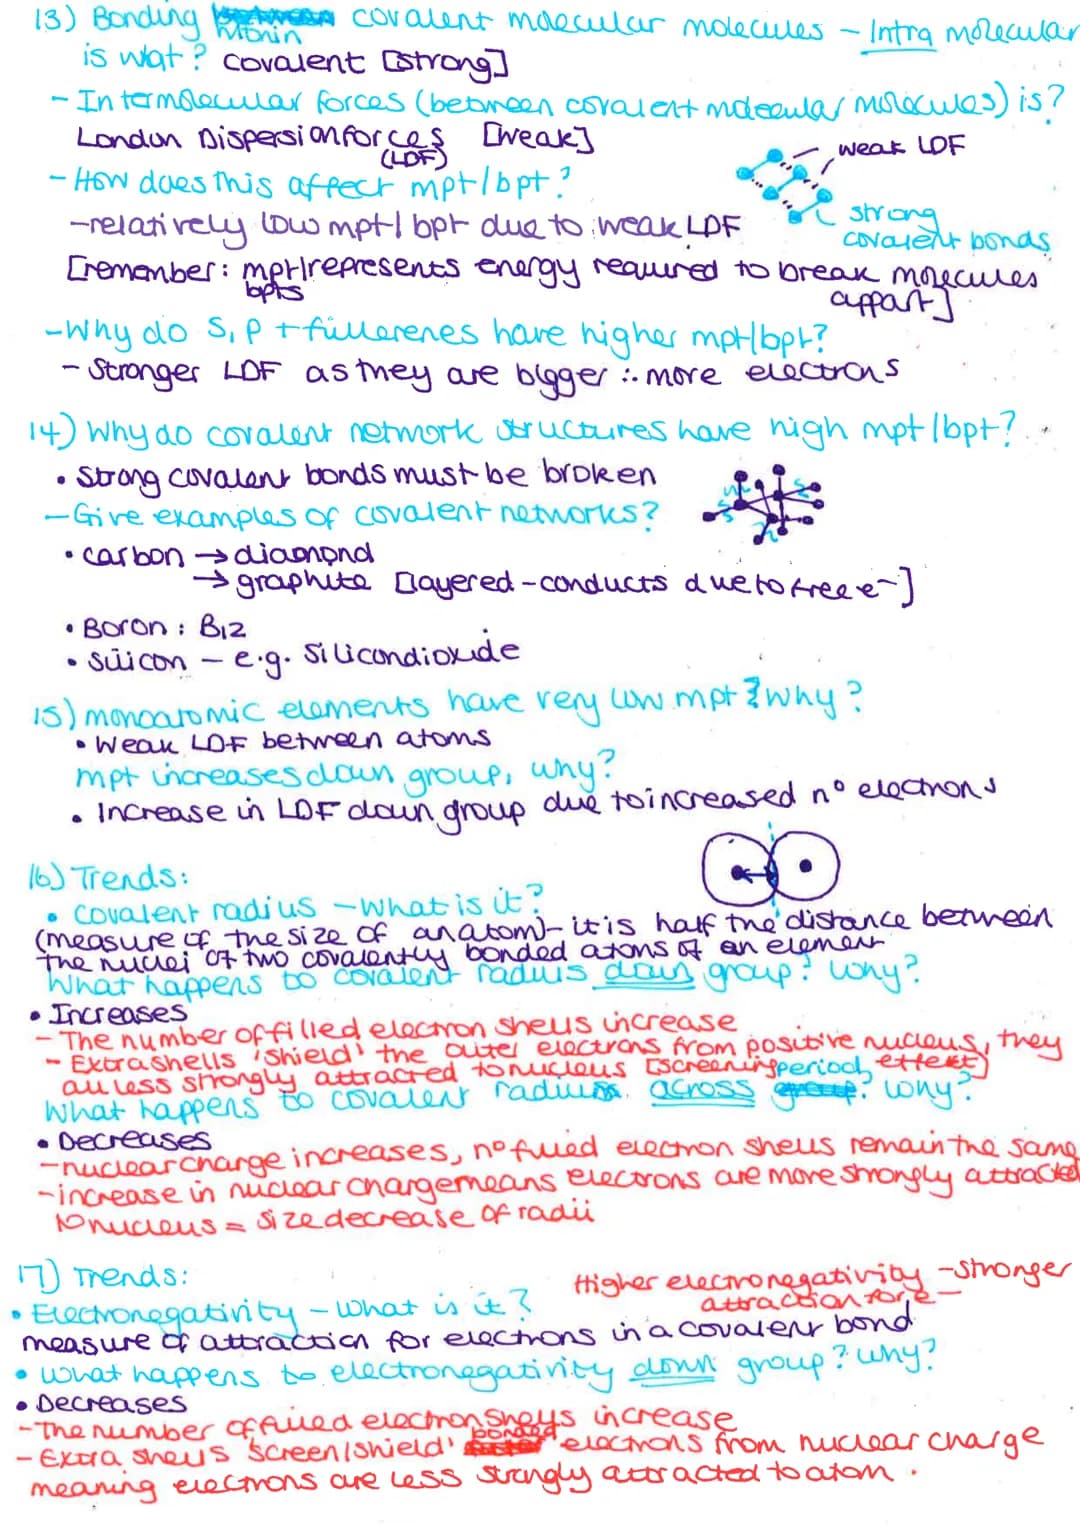 13) Bonding within covalent molecular molecules - Intra molecular
is wat? covalent [strong]
- Intermolecular forces (between covalent molecular molecules) is?
London Dispersion forces [weak]
(LDF)
weak LDF
- How does this affect mpt/bpt?
strong
covalent bonds
- relatively low mpt/bpt due to weak LDF
[remember: mpt/represents energy required to break molecules
bpts
appart]
- Why do S, P + fullerenes have higher mpt/bpt?
- Stronger LDF as they are bigger ∴ more electrons
14) Why do covalent network structures have high mpt/bpt?
• Strong covalent bonds must be broken
- Give examples of covalent networks?
• carbon → diamond
→ graphite [layered - conducts due to free e-]
• Boron : B12
• silicon - e.g. Silicondioxide
15) monoatomic elements have very low mpt? Why?
• Weak LDF between atoms
mpt increases down group, why?
• Increase in LDF down group due to increased nº electrons
16) Trends:
• covalent radius - what is it?
(measure of the size of an atom) - it is half the distance between
the nuclei of two covalently bonded atoms of an element
What happens to covalent radius down group? Why?
• Increases
- The number of filled electron shells increase
- Extra shells 'shield' the outer electrons from positive nucleus, they
au less strongly attracted to nucleus [screening effect]
What happens to covalent radius across period? Why?
• Decreases
- nuclear charge increases, nº filled electron shells remain the same
- increase in nuclear charge means electrons are more strongly attracted
to nucleus = size decrease of radii
17) Trends:
Higher electronegativity - stronger
attraction for e-
• Electronegativity - what is it?
measure of attraction for electrons in a covalent bond
• what happens to electronegativity down group? Why?
• Decreases
- The number of filled electron shells increase
- Extra shells 'screen/shield' bonded electrons from nuclear charge
meaning electrons are less strongly attracted to atom.